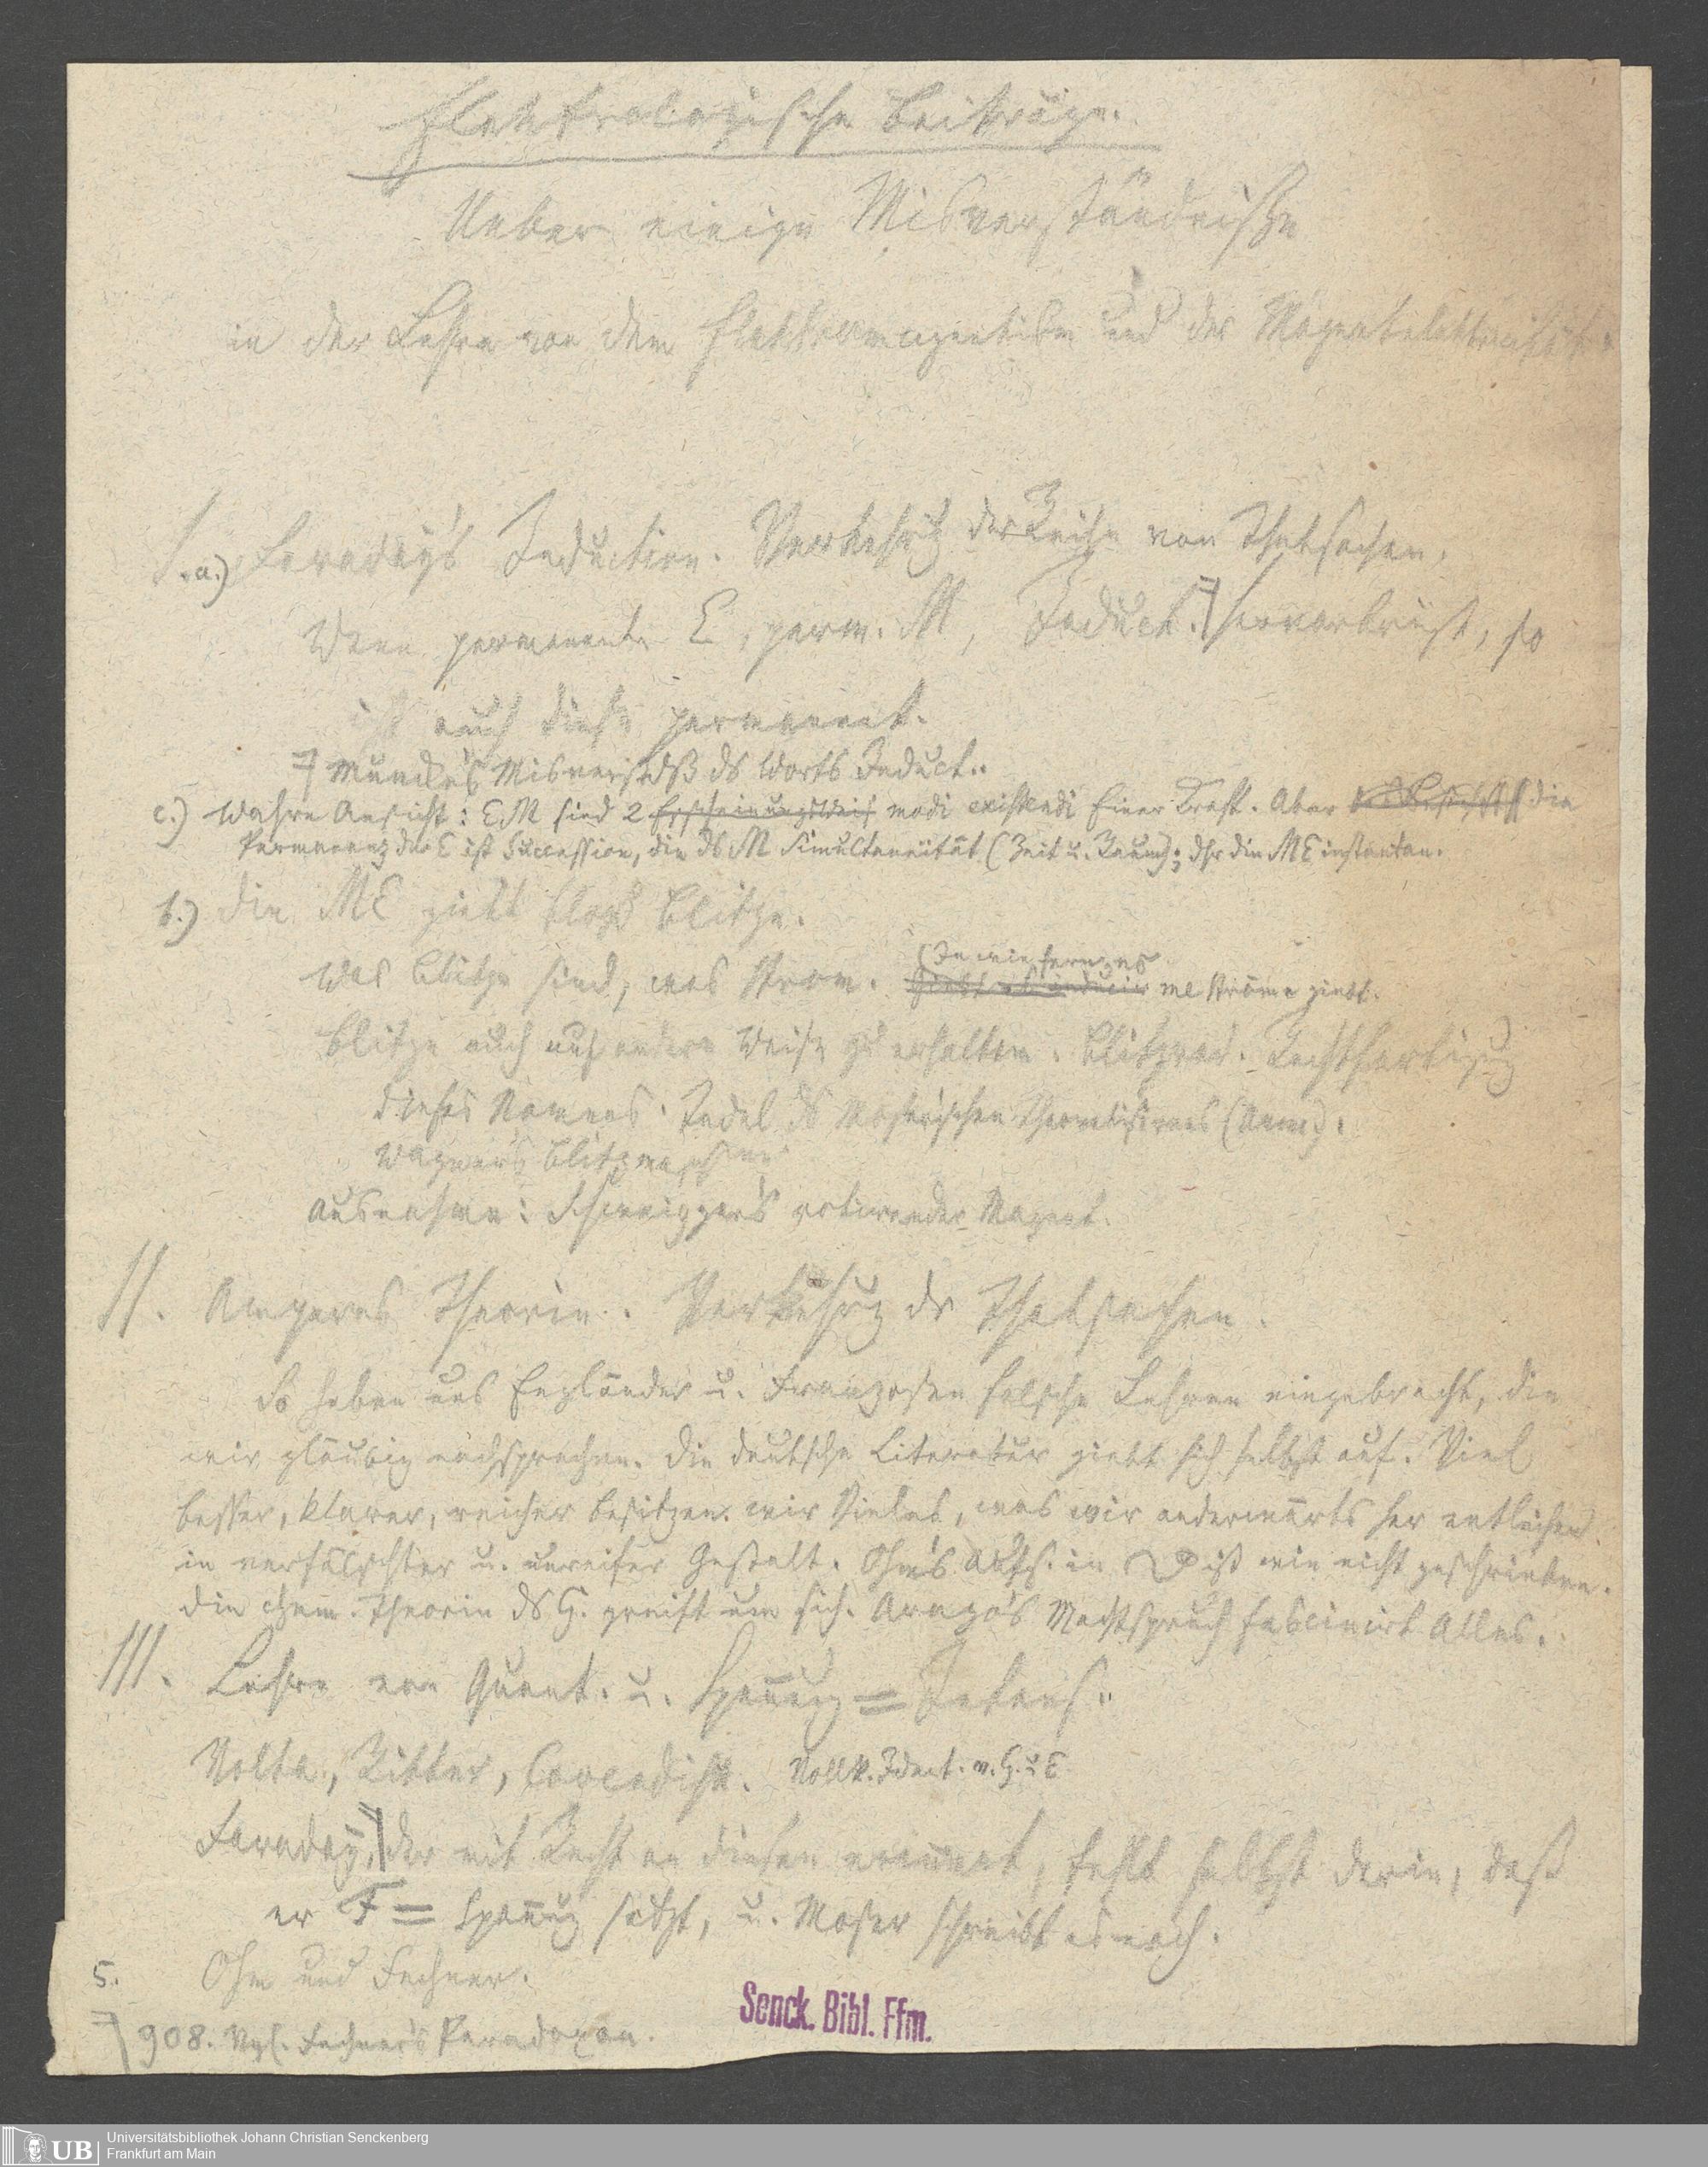 Elektrologische Beiträge.
Ueber einige Misverständnisse
in der Lehre von dem Elektromagnetism und der Magnetelektricität.
I. a.) Faraday's Induction. Verkehrg der Reihe von Thatsachen.
Wenn permanente E, perm. M, Induct. hervorbringt, so
ist auch diese permanent.
Muncke's Misverstdß ds Worts Induct..
c.) Wahre Ansicht: EM sind 2 Erscheinungsweis modi existendi Einer Kraft. Aber die
Permanenz der E ist Succession, die ds M Simultaneität (Zeit u. Raum); dhr die ME instantan.
b.) Die ME giebt blos Blitze.
In wiefern es
Was Blitze sind, was Strom. me Ströme giebt.
Blitze auch auf andere Weise zu erhalten. Blitzrad. Rechtfertigug
dieses Namens. Tadel ds Moser'schen (Anm).
Wagner's Blitzmaschine
Ausnahme: Schweigger's rotirender Magnet.
II. Amperes Theorie. Verkehrg dr Thatsachen.
So haben uns Engländer u. Franzosen falsche Lehren eingebracht, die
wir gläubig nachsprechen. Die deutsche Literatur giebt sich selbst auf. Viel
besser, klarer, reicher besitzen wir Vieles, was wir anderwärts her entleihen
in verfälschter u. unreifer Gestalt. Ohm's Aufs. in ist wie nicht geschrieben.
Die chem. Theorie ds G. greift um sich. Arago's Machtspruch fascinirt Alles.
III. Lehre von Quant. u. Spannug = Intens..
Volta, Ritter, Cavendish. Vollk. Ident. v. G. u E
Faraday, der mit Recht an diesen erinnert, fehlt selbst darin, daß
er F = Spannug setzt, u. Moser schreibt es nach.
5. Ohm und Fechner.
908. Vgl. Fechner's Paradoxon.
Senck. Bibl. Ffm.
UB
Universitätsbibliothek Johann Christian Senckenberg
Frankfurt am Main